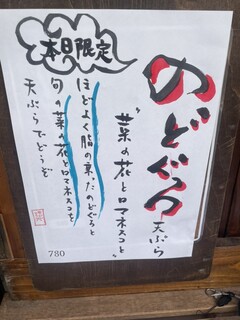 本日限定
のどぐろ
天ぷら
"菜の花とロマネスコと"
ほどよく脂の乗ったのどぐろと
旬の菜の花とロマネスコを
天ぷらでどうぞ
780